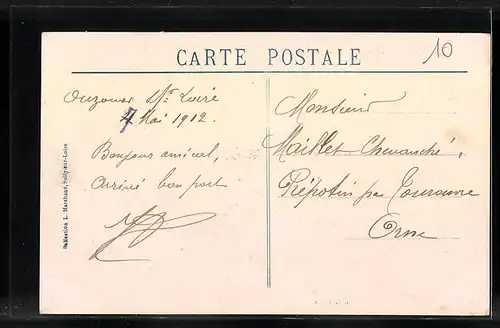 CARTE POSTALE
10
Ouzouer S/ Loire
7 Mai 1912.
Bonjour amical,
arrivé bon port
Monsieur
Maillet-Chevanché,
Prépotin par Tourouvre
Orne
Collection L. Marchand, Sully-sur-Loire